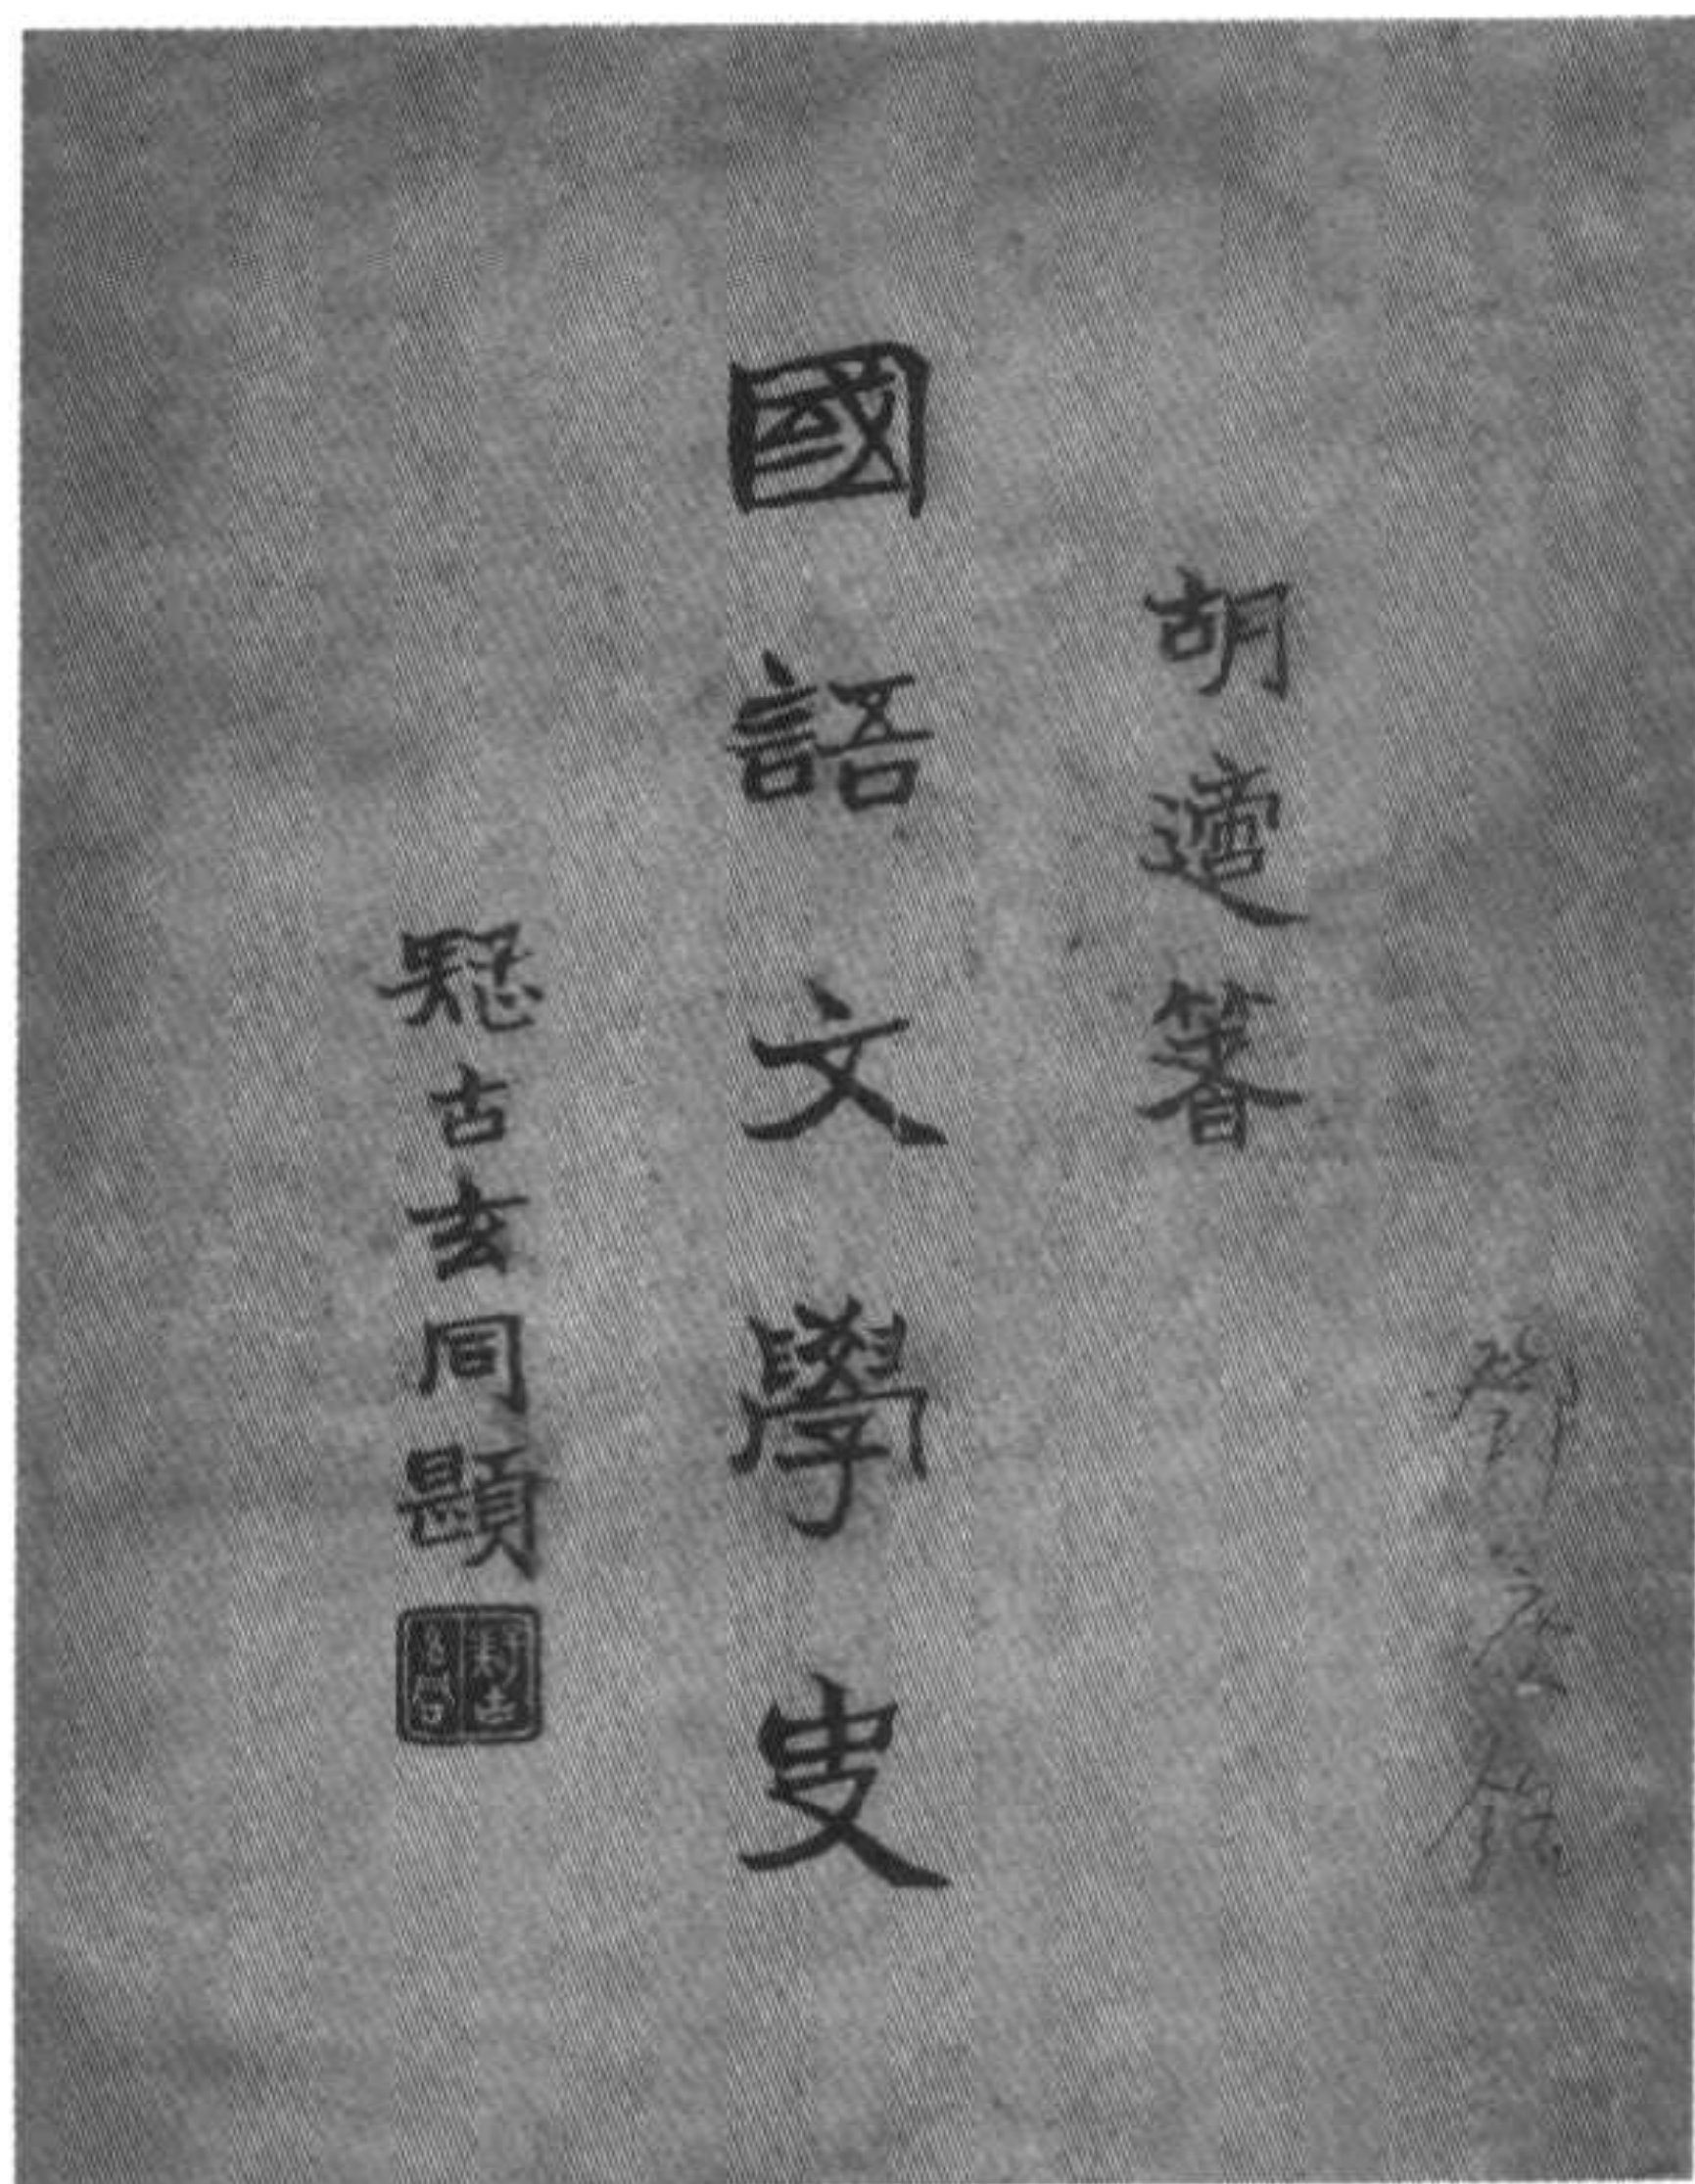 胡適箸
國語文學史
疑古玄同題